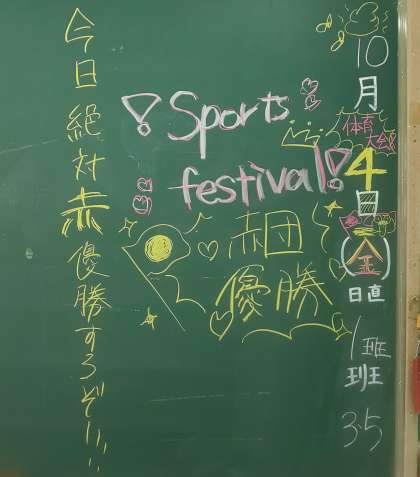 10月4日(金)
体育
大会
日直
1班
班
35
Sports
festival!
赤団
優勝
今日絶対赤優勝するぞ!!!